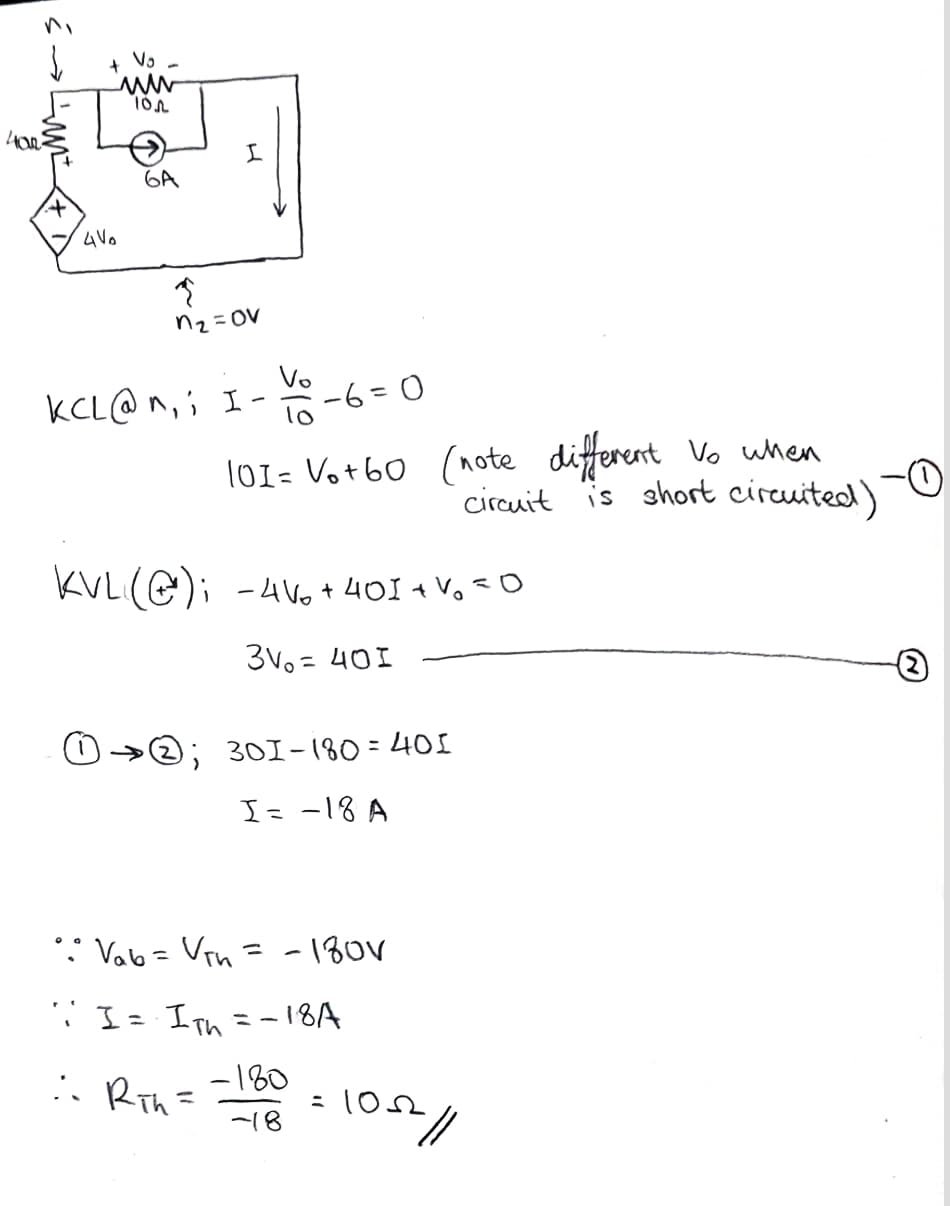 n₁
+ V₀ -
10Ω
-
40Ω
+
I
6A
+
-
4V₀
n₂=0V
KCL@n₁; I - V₀/10 - 6 = 0
10I = V₀ + 60 (note different V₀ when
circuit is short circuited) - ①
KVL(⊕); -4V₀ + 40I + V₀ = 0
3V₀ = 40I ②
① → ②; 30I - 180 = 40I
I = -18 A
∵ Vab = VTh = -180V
∵ I = ITh = -18A
∴ RTh = -180/-18 = 10Ω //